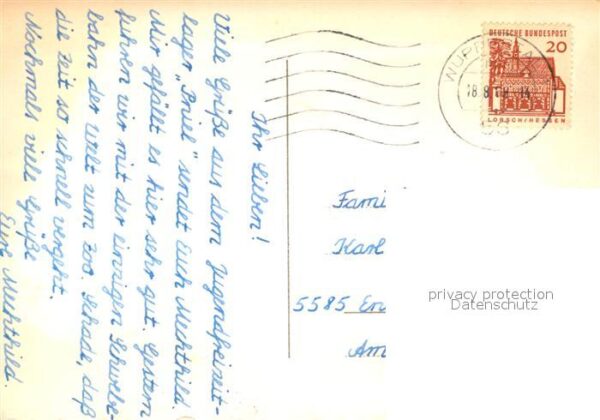 Ihr Lieben!
Viele Grüße aus dem Jugendfreizeit-
lager „Briel" sendet Euch Mechthild.
Mir gefällt es hier sehr gut. Gestern
fuhren wir mit der einzigen Schwebe-
bahn der Welt zum Zoo. Schade, daß
die Zeit so schnell vergeht.
Nochmals viele Grüße
Eure Mechthild.
DEUTSCHE BUNDESPOST
20
LORSCH/HESSEN
WUPPERTAL
18.8.
Fami
Karl
5585 En
Am
privacy protection
Datenschutz